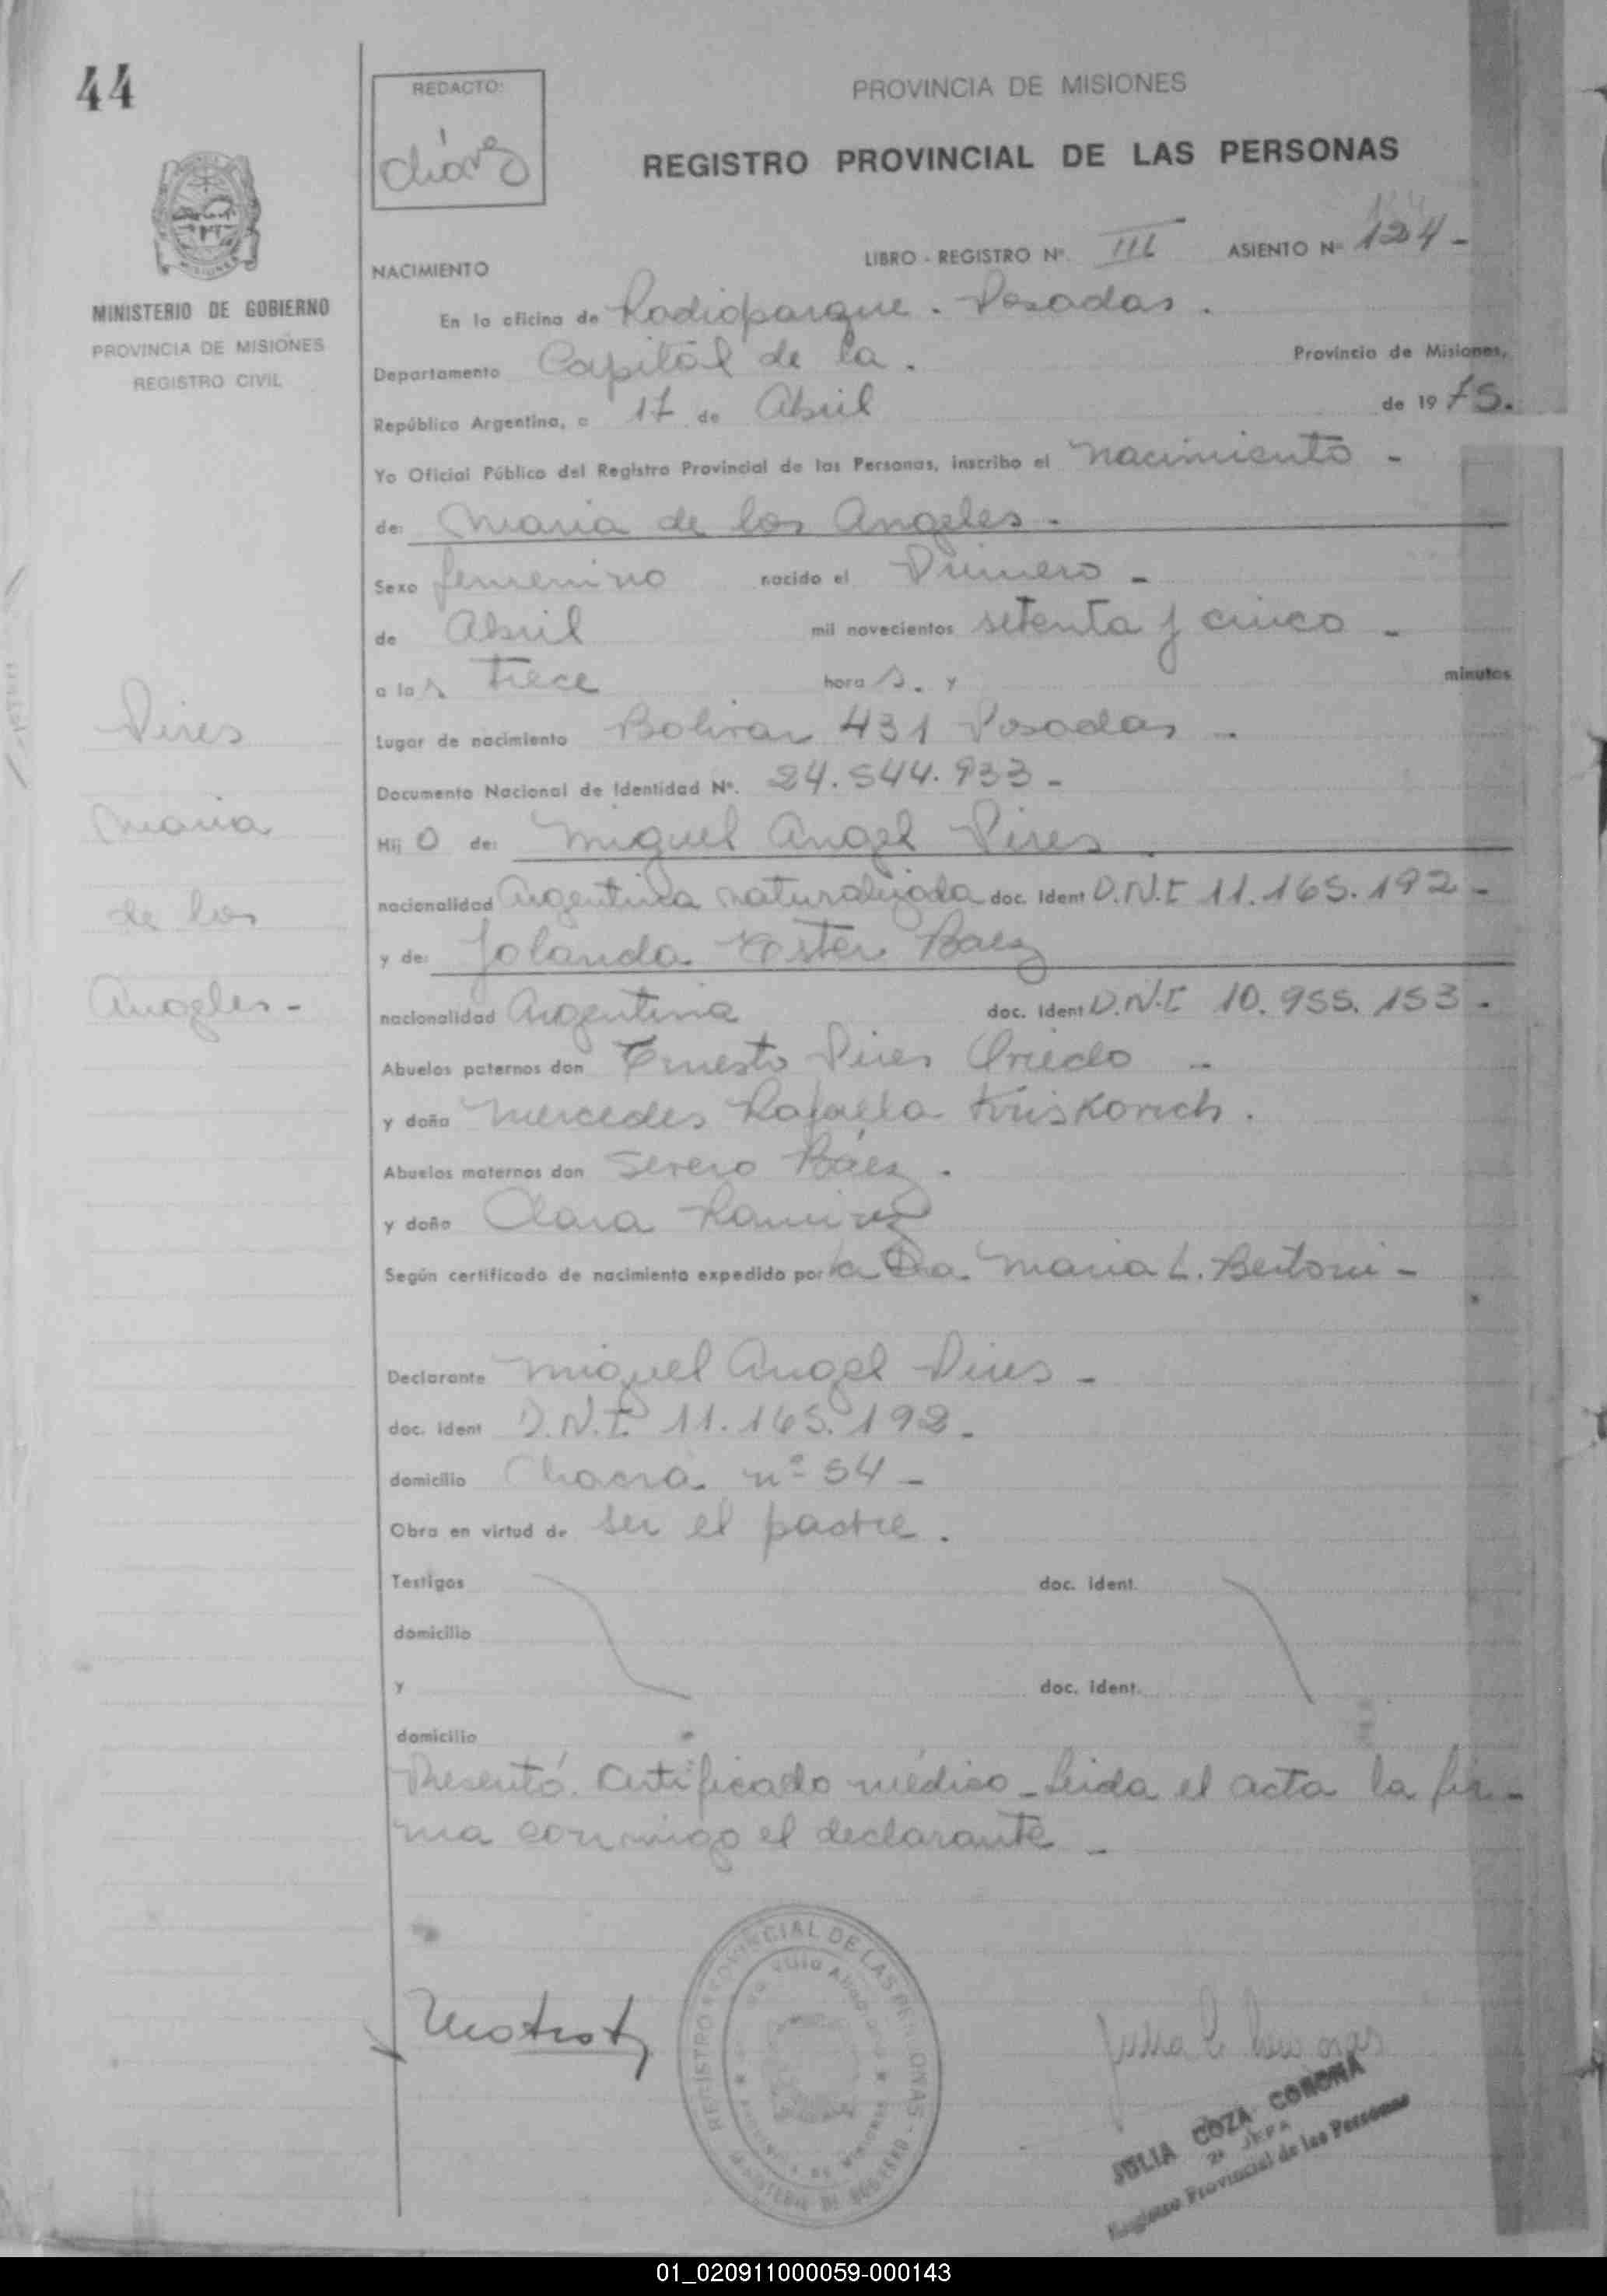 44
REDACTO:
Chávez
PROVINCIA DE MISIONES
REGISTRO PROVINCIAL DE LAS PERSONAS
LIBRO - REGISTRO Nº. III ASIENTO Nº 124 -
NACIMIENTO
MINISTERIO DE GOBIERNO
PROVINCIA DE MISIONES
REGISTRO CIVIL
En la oficina de Radioparque. Posadas.
Departamento Capital de la. Provincia de Misiones,
República Argentina, a 17 de Abril de 1975.
Yo Oficial Público del Registro Provincial de las Personas, inscribo el nacimiento -
de: Maria de los Angeles.
Sexo femenino nacido el Primero -
de Abril mil novecientos setenta y cinco -
a las trece horas. y minutos
Lugar de nacimiento Bolivar 431 Posadas -
Documento Nacional de Identidad Nº. 24.544.933 -
Hij o de: Miguel Angel Pires
nacionalidad Argentina naturalizada doc. Ident D.N.I 11.165.192 -
y de: Yolanda Ester Baez
nacionalidad Argentina doc. Ident D.N.I 10.955.153 -
Abuelos paternos don Ernesto Pires Oviedo -
y doña Mercedes Rafaela Kriskovich.
Abuelos maternos don Severo Báez.
y doña Clara Ramirez
Según certificado de nacimiento expedido por la Dra. Maria L. Bertoni -
Pires
Maria
de los
Angeles -
Declarante Miguel Angel Pires -
doc. ident D.N.I. 11.165.192 -
domicilio Chacra nº 54 -
Obra en virtud de ser el padre.
Testigos doc. ident.
domicilio
y doc. ident.
domicilio
Presentó. Certificado médico - Leida el acta la fir-
ma conmigo el declarante -
REGISTRO PROVINCIAL DE LAS PERSONAS - MINISTERIO DE GOBIERNO
PROVINCIA DE MISIONES
JULIA COZA CORONA
2º JEFA
Registro Provincial de las Personas
01_020911000059-000143